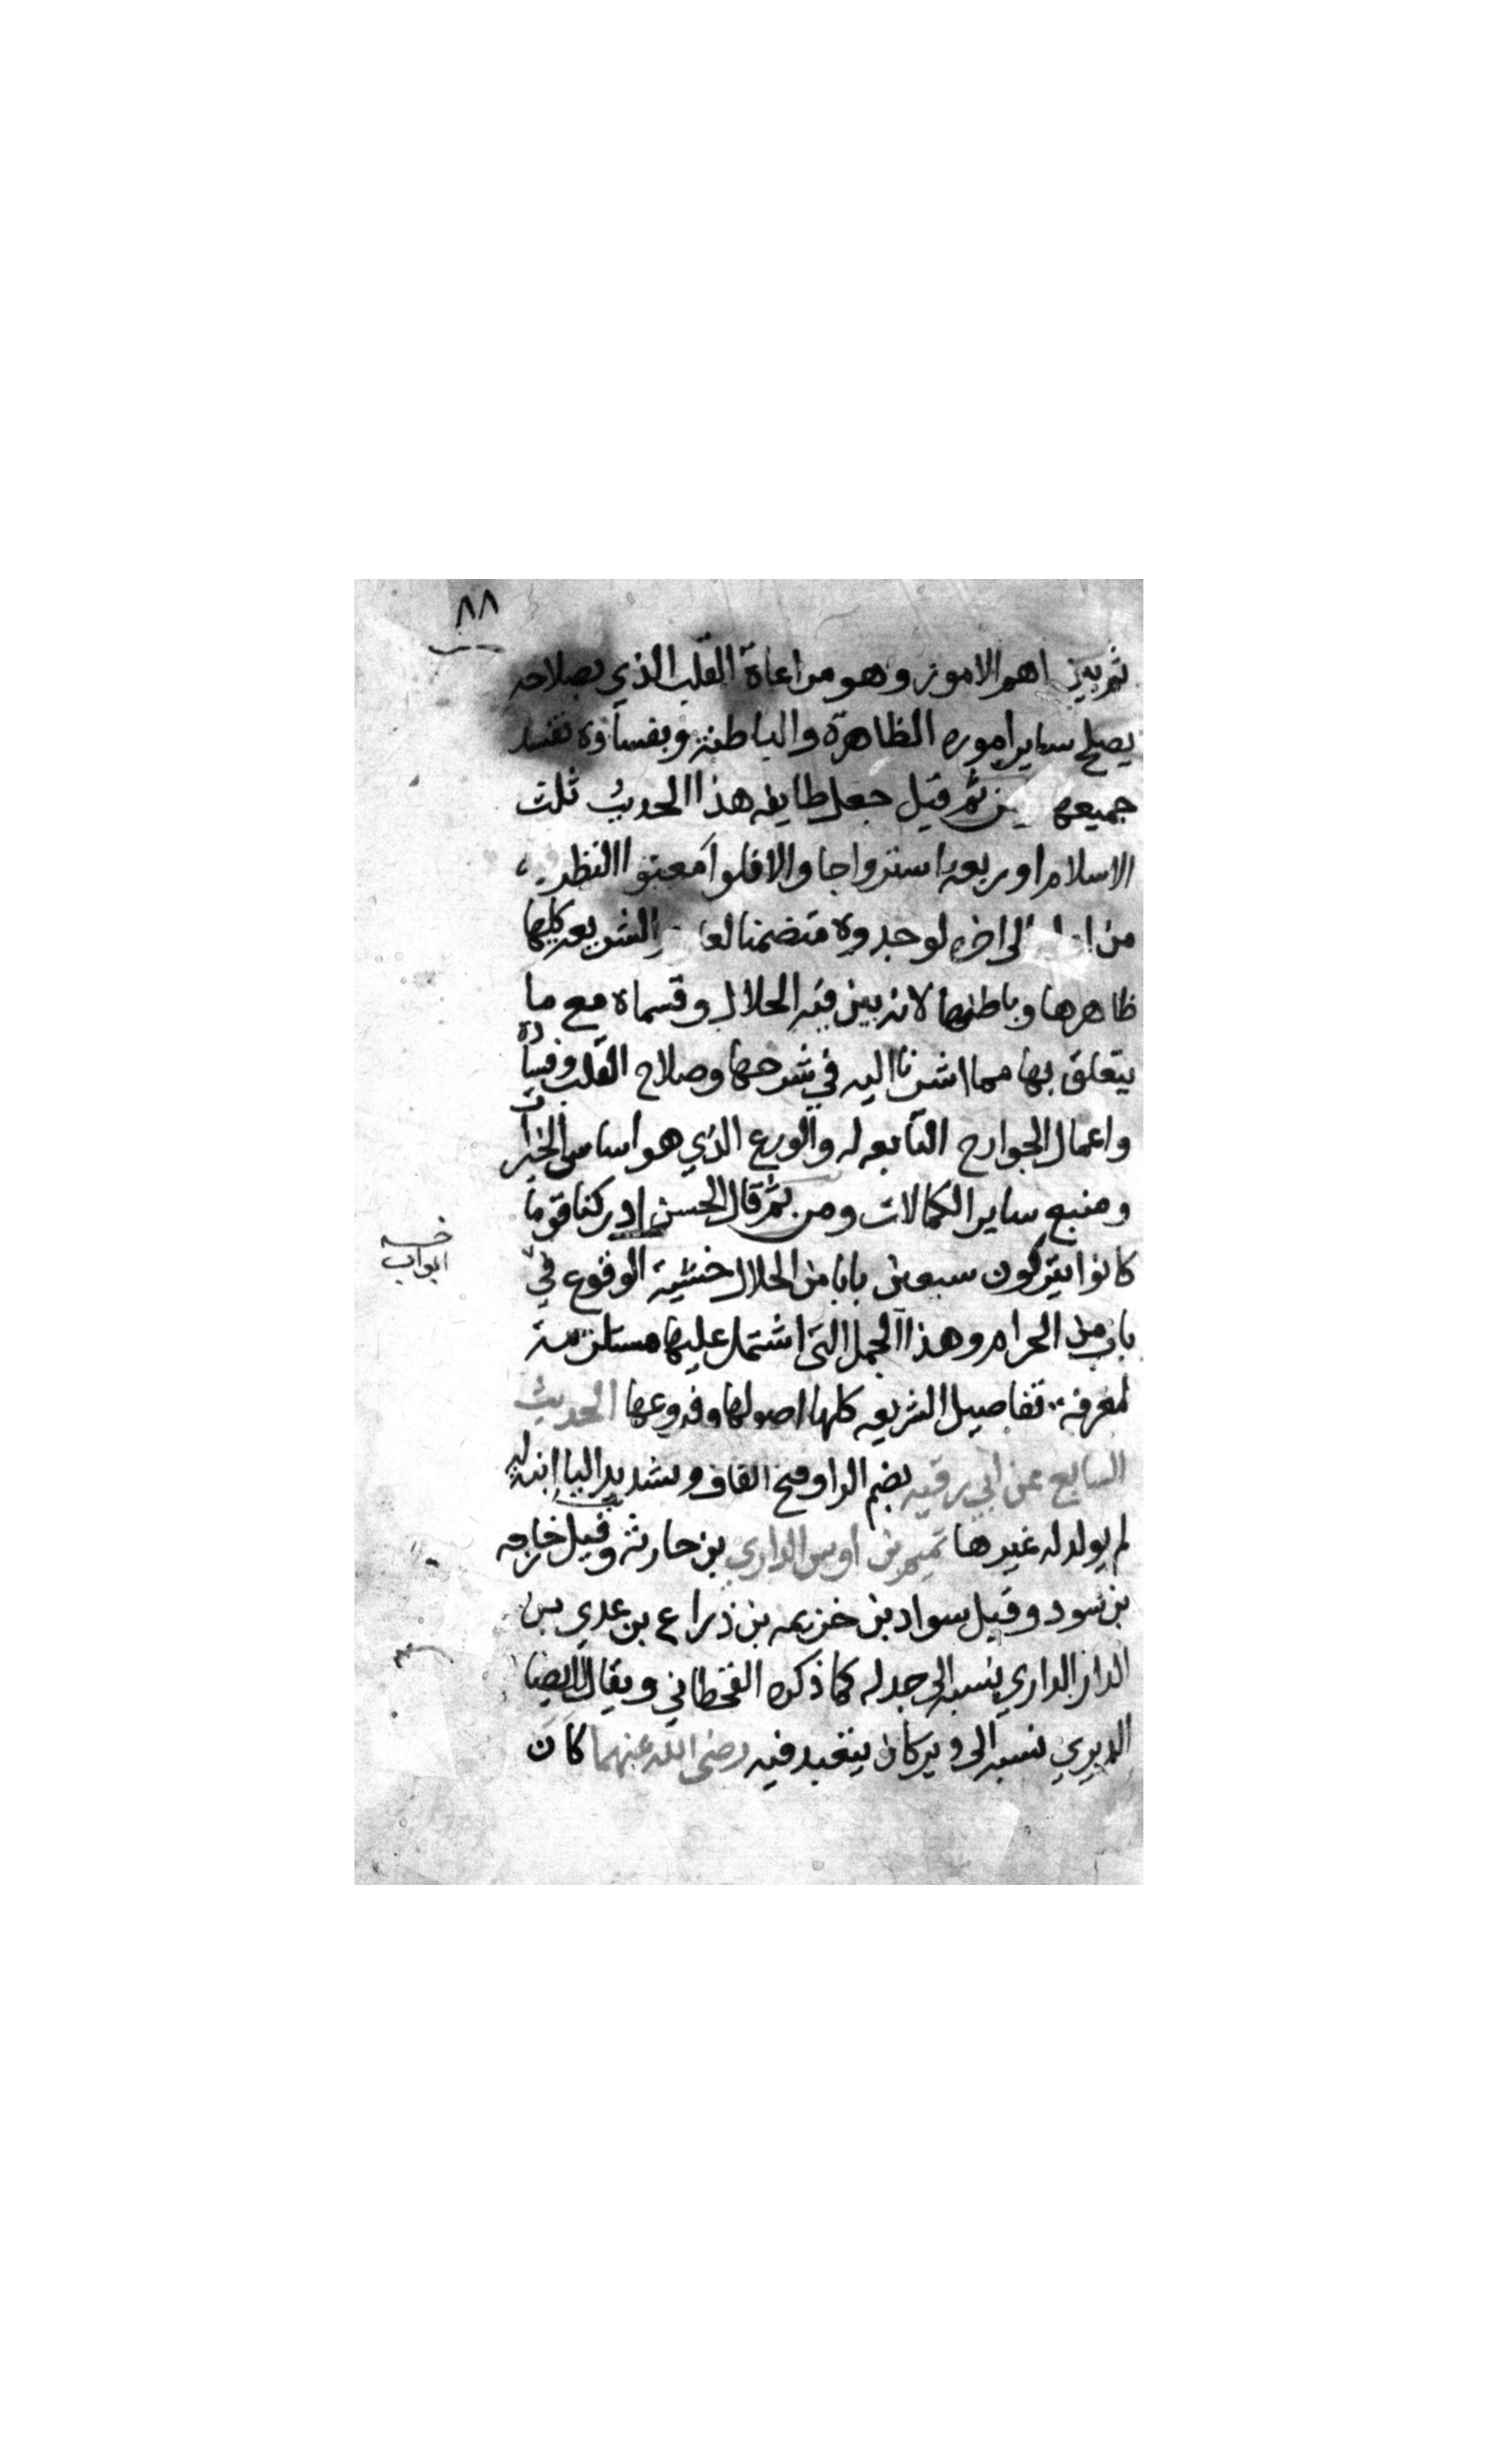 ٨٨
ثم بين اهم الامور وهو مراعاة القلب الذي بصلاحه
يصلح ساير اموره الظاهرة والباطنة وبفساده تفسد
جميعها ثم قيل جعل طايفه هذا الحديث ثلث
الاسلام او ربعه استرواحا والا فلو امعنوا النظر فيه
من الى اخره لوجدوه متضمنا الشريعه كلها
ظاهرها وباطنها لانه بين فيه الحلال وقسماه مع ما
يتعلق بها مما اشرنا اليه في شرحها وصلاح القلب وفساده
واعمال الجوارح التابعه له والورع الذي هو اساس الخيرات
ومنبع ساير الكمالات ومن ثم قال الحسن ادركنا قوما
كانوا يتركون سبعين بابا من الحلال خشية الوقوع في
باب من الحرام وهذا الجمل التي اشتمل عليها مستلزمة
لمعرفه تفاصيل الشريعه كلها اصولها وفروعها الحديث
السابع عن ابي رقيه بضم الرا وفتح القاف وتشديد اليا ابنة له
لم يولد له غيرها تميم بن اوس الداري بن حارثة وقيل خارجه
بن سود وقيل سواد بن خزيمه بن ذراع بن عدي بن
الدار الداري نسبه الى جد له كما ذكره القحطاني ويقال ايضا
الديري نسبه الى دير كان يتعبد فيه رضي الله عنهما كان
خمسه
ابواب